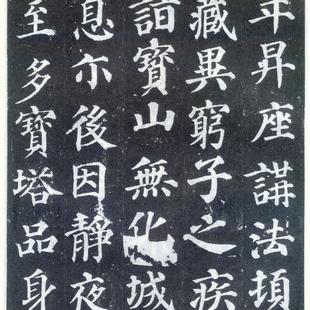 年昇座講法頓
藏異窮子之疾
詣寶山無化城
息尒後因靜夜
至多寶塔品身